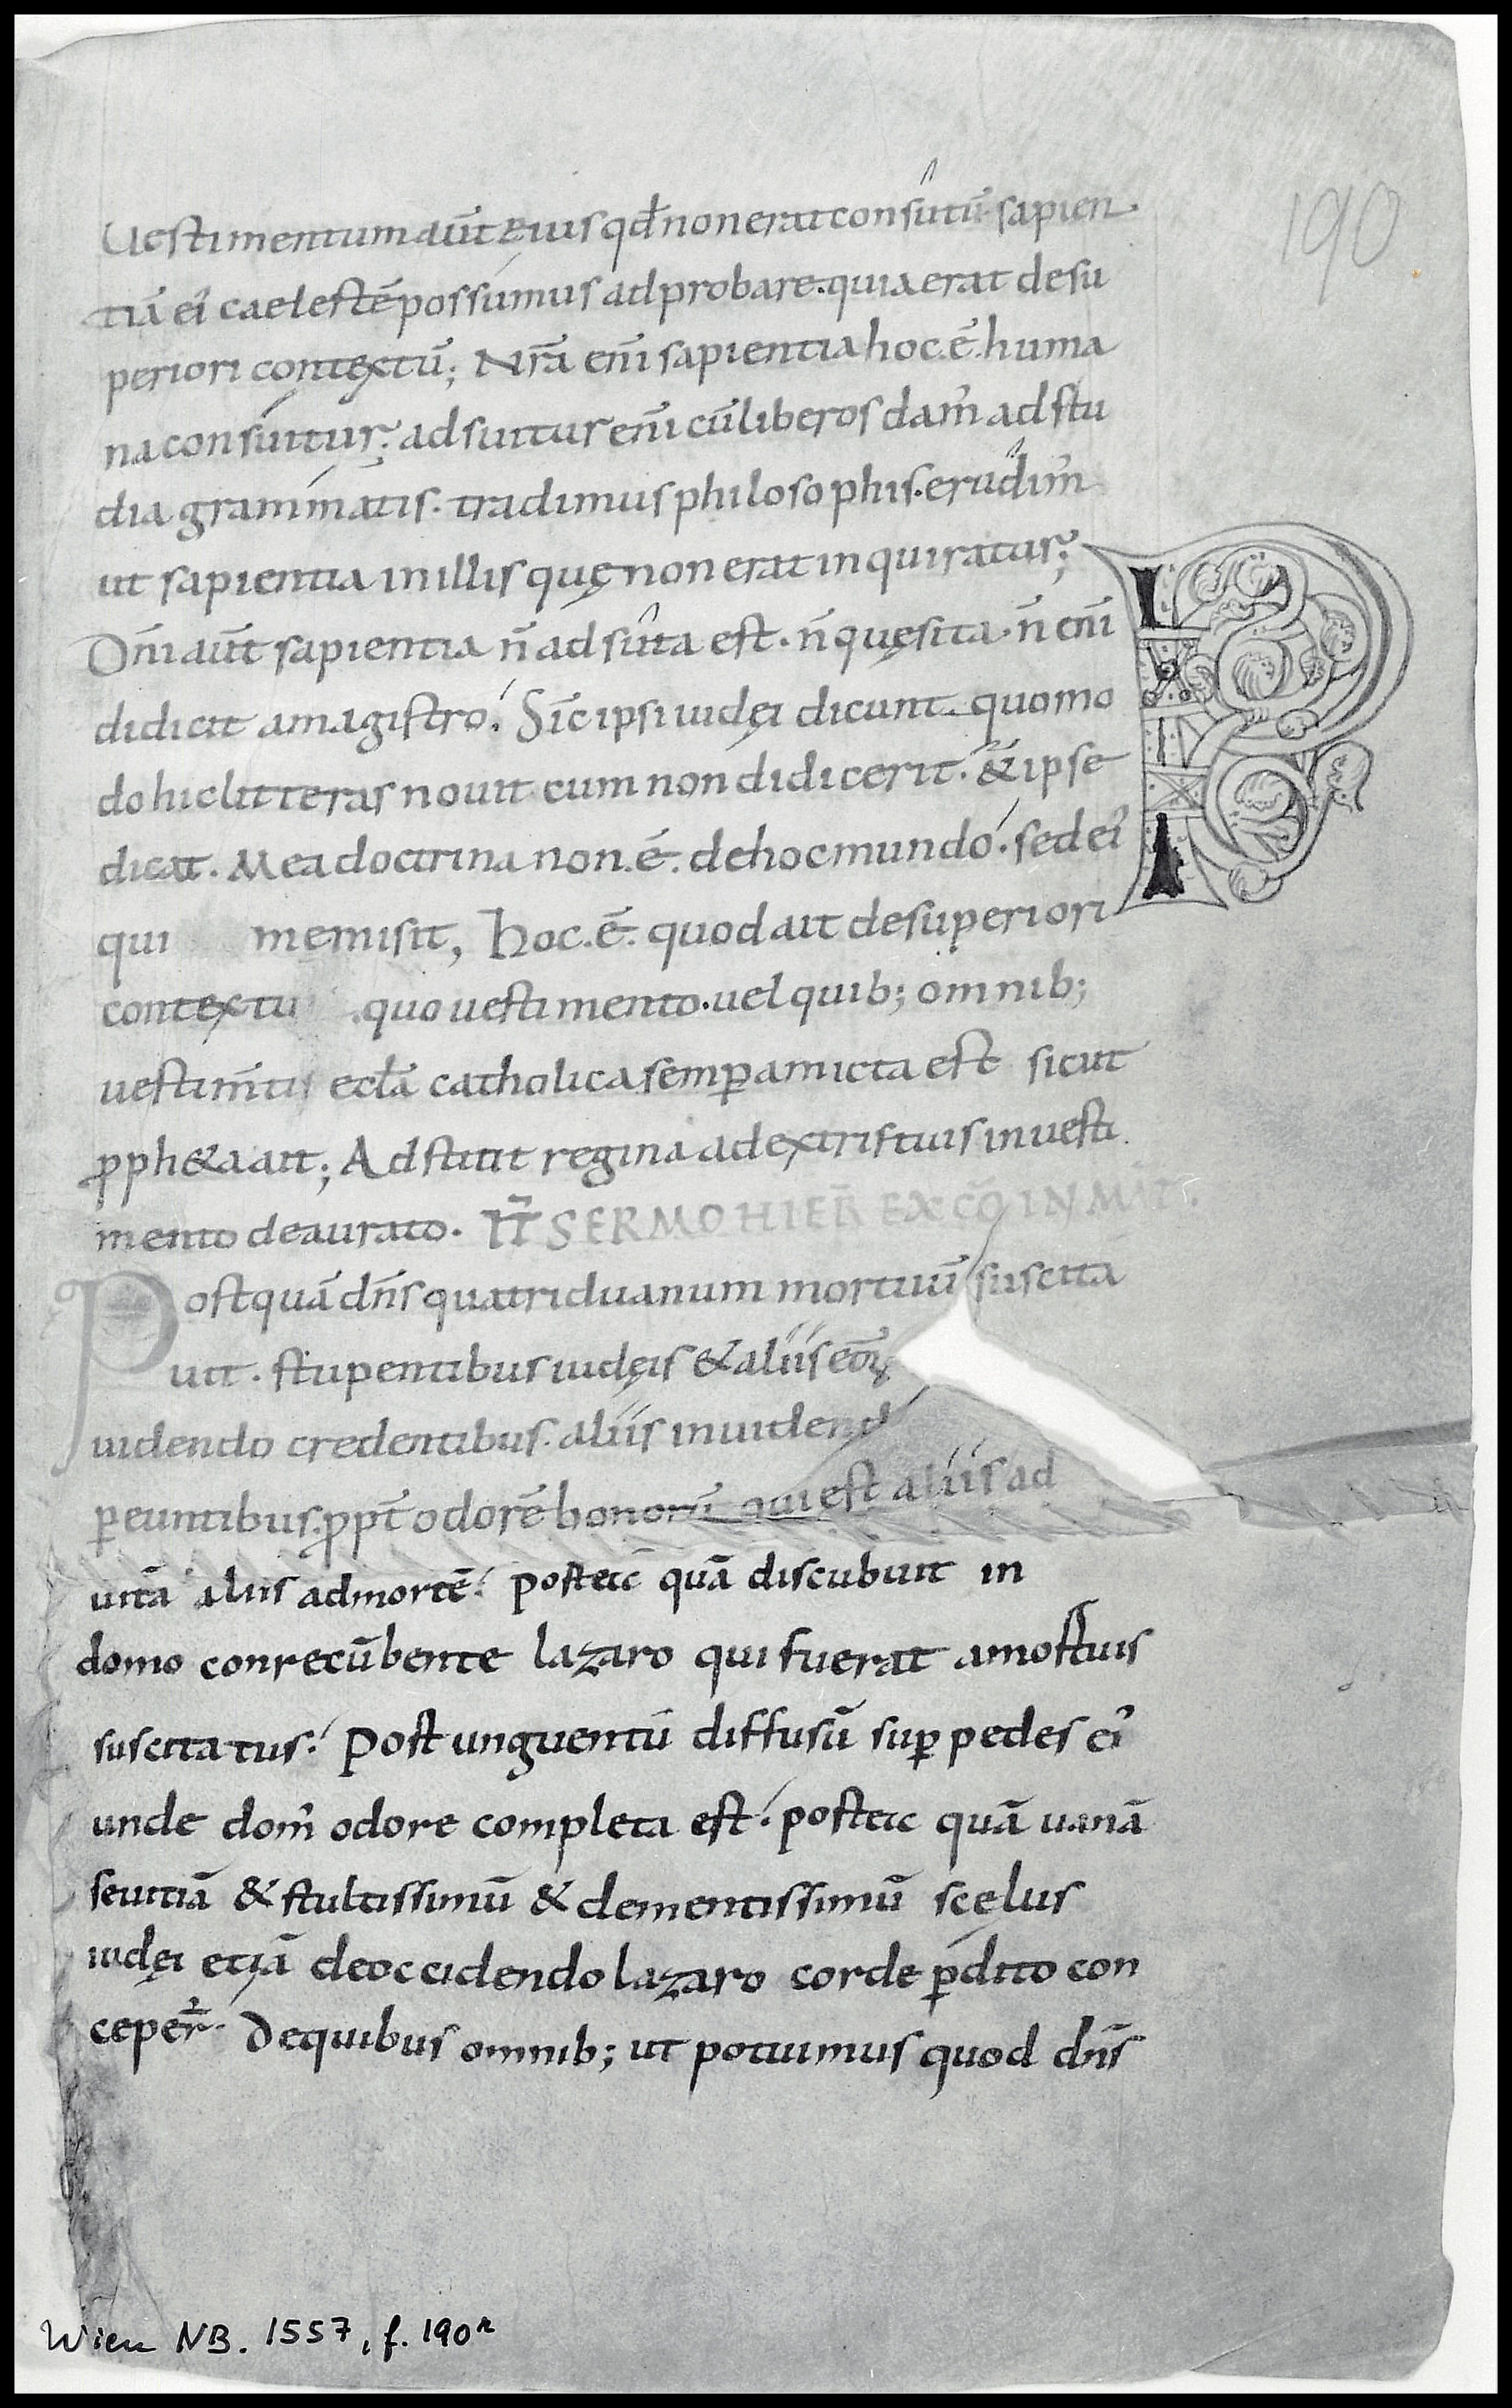 190
Uestimentum aūt eius qđ non erat consutū sapien
tiā ei' caelestē possumus adprobare. quia erat desu
periori contextū; Nr̄a eni̅ sapientia hoc.ē. huma
na consuitur; adsuitur eni̅ cū liberos dam' ad stu
dia grammatis. tradimus philosophis. erudim'
ut sapientia in illis quę non erat inquiratur;
Dn̄i aūt sapientia n̄ adsuta est. n̄ quęsita. n̄ eni̅
didicit a magistro. Sic ipsi iudęi dicunt. quomo
do hic litteras nouit cum non didicerit. & ipse
dicat. Mea doctrina non.ē. de hoc mundo. sed ei'
qui me misit, hoc.ē. quod ait desuperiori
contextu quo uestimento. uel quib; omnib;
uestim̅tis eccła catholica semp̱ amicta est sicut
ꝓph&a ait; Adstitit regina a dextris tuis in uesti
mento deaurato. IT̄ SERMO HIER̄ EX CŌ IN MAT.
Postquā dn̄s quatriduanum mortuū suscita
uit. stupentibus iudęis & aliis eoꝝ
uidendo credentibus. aliis inuidend
ꝑeuntibus. ꝓpt̄ odorē bonorū qui est aliis ad
uitā aliis ad mortē. Postea quā discubuit in
domo conrecūbente lazaro qui fuerat a mortuis
suscitatus. Post unguentū diffusū sup̱ pedes ei'
unde dom' odore completa est. postea quā uanā
seuitiā & stultissimū & dementissimū scęlus
iudęi etiā de occidendo lazaro corde ꝑdito con
ceper̄. De quibus omnib; ut potuimus quod dn̄s
Wien NB. 1557, f. 190r